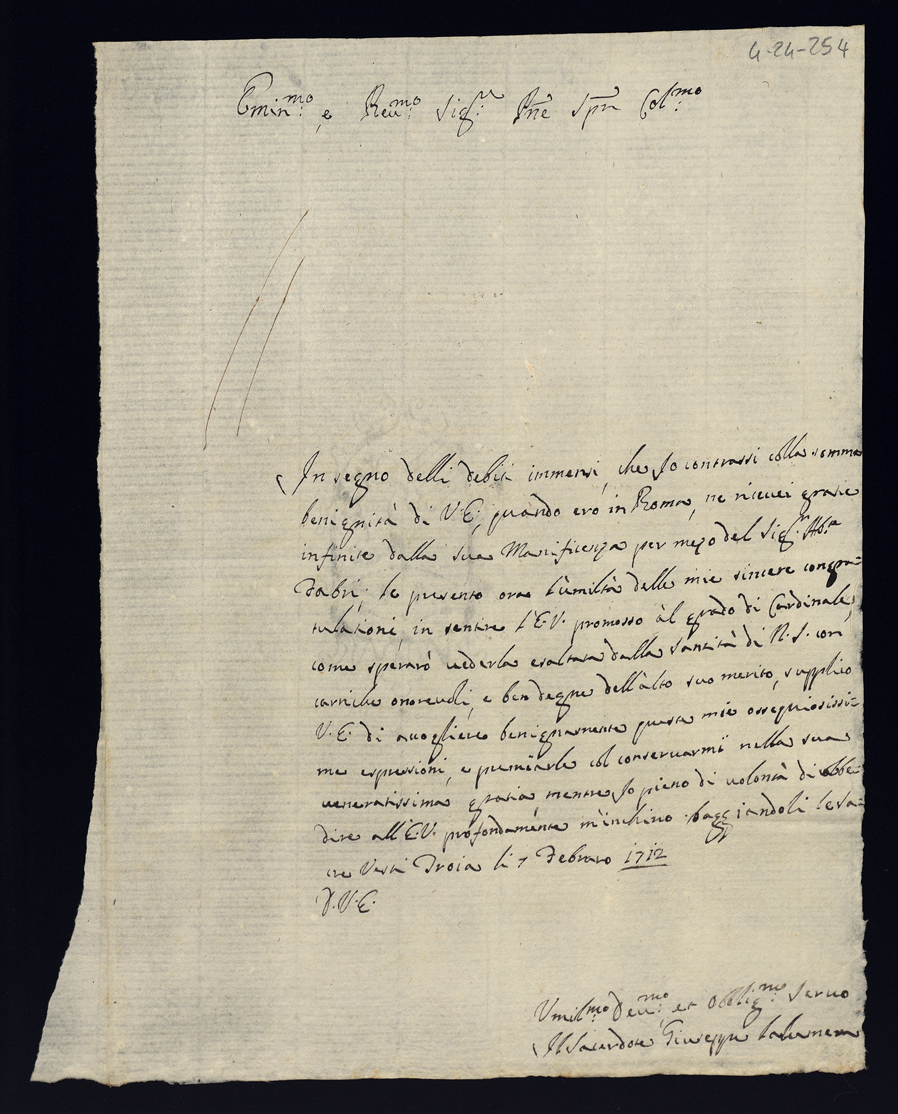 4-24-254
Emin.mo e Reu.mo Sig.r Pne Spn Col.mo
In segno delli debiti immensi, che Io contrassi colla somma
benignità di V.E., quando ero in Roma, ne riceuei grazie
infinite dalla sua Manificenza per mezo del Sig.r Ab.te
Fabri; le presento ora l'umiltà delle mie sincere congra=
tulationi, in sentire l'E.V. promosso àl grado di Cardinale,
come sperarò uederla esaltata dalla Santità di N.S. con
cariche onoreuoli, e ben degne dell'alto suo merito, supplico
V.E. di accogliere benignamente queste mie ossequiosissi=
me espressioni, e premiarle col conseruarmi nella sua
ueneratissima grazia, mentre Io pieno di uolontà di obbe=
dire all'E.V. profondamente m'inchino baggiandoli le Sa=
cre Vesti Troia li 7 Febraro 1712
D.V.E.
Vmil.mo Deu.mo et Obblig.mo Seruo
Il Sacerdote Giuseppe